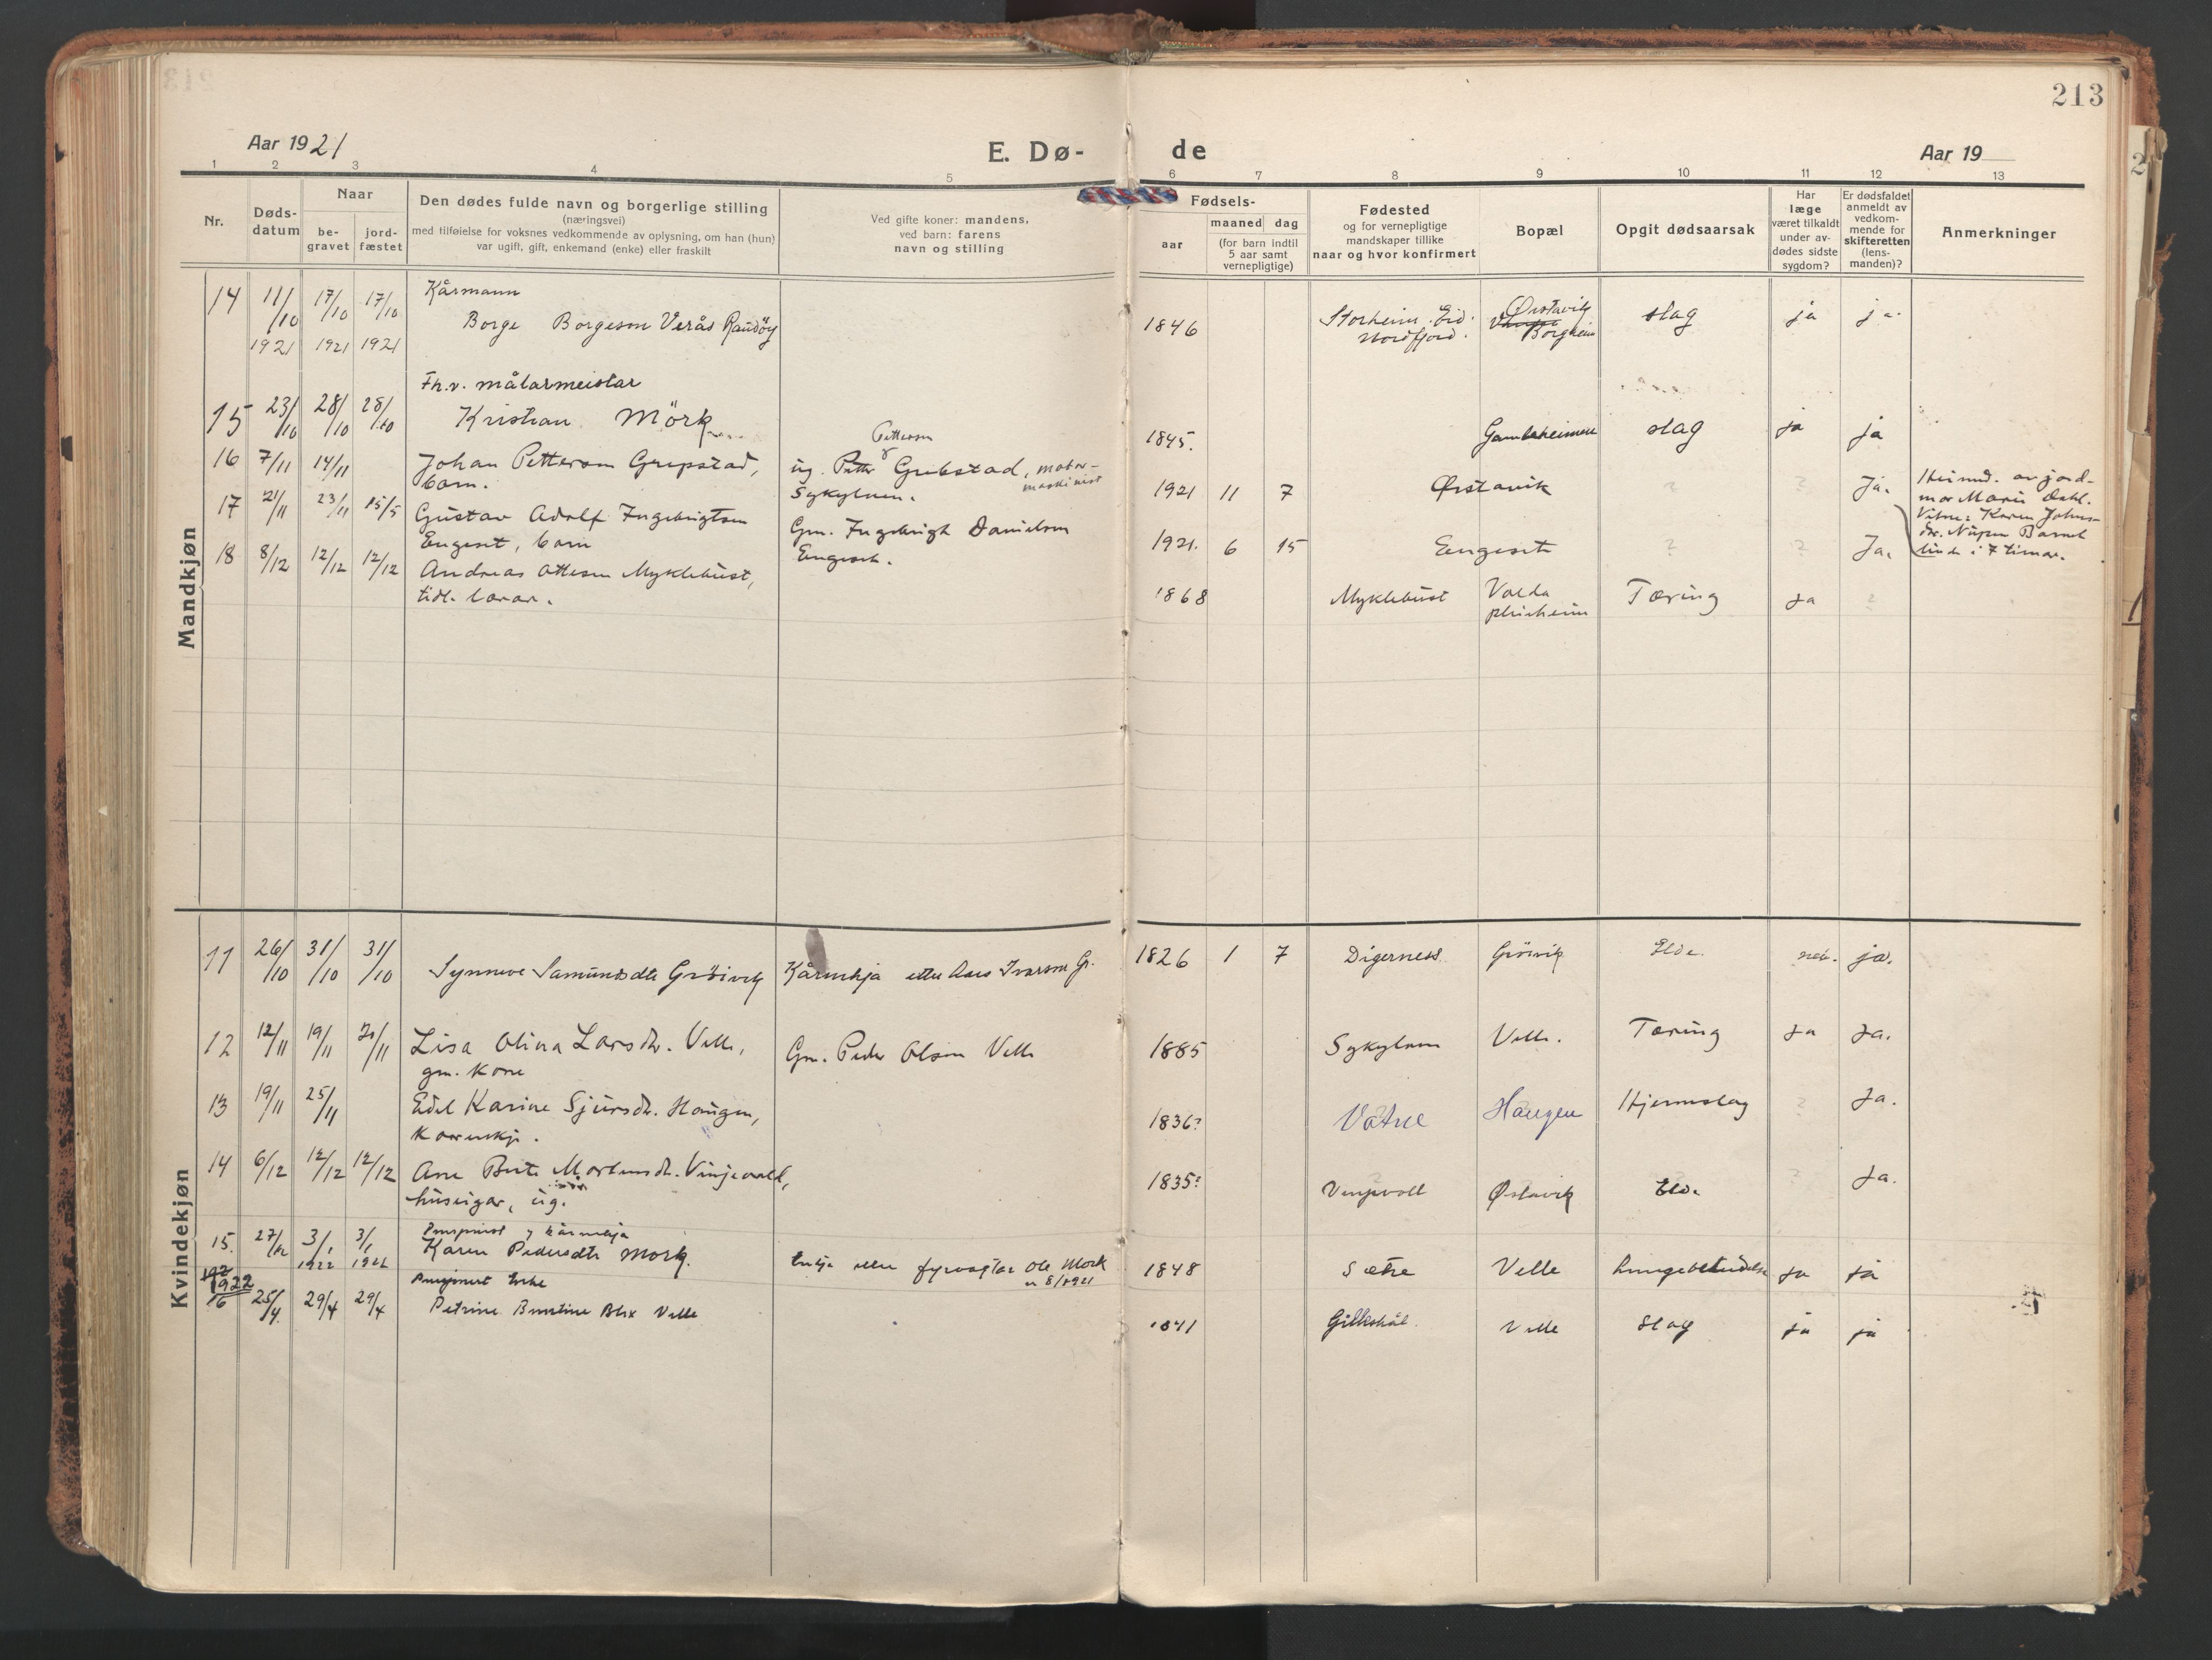 213
Aar 1921
E. Dø-
de
Aar 19
1 2 3 4 5 6 7 8 9 10 11 12 13
Nr.
Døds-
datum
Naar
be-
gravet
jord-
fæstet
Den dødes fulde navn og borgerlige stilling
(næringsvei)
med tilføielse for voksnes vedkommende av oplysning, om han (hun)
var ugift, gift, enkemand (enke) eller fraskilt
Ved gifte koner: mandens,
ved barn: farens
navn og stilling
Fødsels-
aar
maaned dag
(for barn indtil
5 aar samt
vernepligtige)
Fødested
og for vernepligtige
mandskaper tillike
naar og hvor konfirmert
Bopæl
Opgit dødsaarsak
Har
læge
været tilkaldt
under av-
dødes sidste
sygdom?
Er dødsfaldet
anmeldt av
vedkom-
mende for
skifteretten
(lens-
manden)?
Anmerkninger
Mandkjøn
14 11/10 1921 17/10 1921 17/10 1921 Kårmann
Borge Borgeson Verås Raudöy 1846 Storheim. Eid. Nordfjord. Ørstavik Borgheim slag ja ja.
15 23/10 28/10 28/10 Fh.v. målarmeistar
Kristian Mörk 1845. slag ja ja
16 7/11 14/11 Johan Petterson Grepstad,
barn.
ug. Petter Petterson Grebstad, motor-
maskinist
Sykylven.
1921 11 7 Ørstavik ? ? Ja.
Heimd. av jord-
mor Marie Dahl.
Vitne: Karen Johns-
dr. Nupen Barnet
levde i 7 timar.
17 21/11 23/11 15/5 Gustav Adolf Ingebrigtson
Engeset, barn
Gm. Ingebrigt Danielson
Engeset.
1921. 6 15 Engeset ? ? Ja.
18 8/12 12/12 12/12 Andreas Otteson Myklebust,
tidl. lærar.
1868 Myklebust Volda
pleieheim Tæring Ja ?
Kvindekjøn
11 26/10 31/10 31/10 Synneve Samundsdtr Gröivik Kårenkja etter Aars Ivarson Gr. 1826 1 7 Digerness Gröivik Elde. nei. ja.
12 12/11 19/11 /11 Lisa Olina Larsdr. Velle,
gm. kone
Gm. Peder Olson Velle 1885 Sykylven Velle. Tæring Ja Ja.
13 19/11 25/11 Edel Karine Sjursdr. Haugen,
Kårenkj.
1836? Vatne Haugen Hjerneslag ? Ja.
14 6/12 12/12 12/12 Ane Berte Mortensdr. Vinjevoll,
huseigar, ug.
1835? Vinjevoll Ørstavik Elde ? Ja.
15. 27/12 3/1 1922 3/1 1922 kårenkja
Karen Pedersdtr Mork.
Enkja etter fyrvogtar Ole Mork
1848 Sætre Velle lungebetendelse ja ja
1922
16 25/4 29/4 29/4 Pensjonert Enke
Petrine Bix Velle
1841 Gilleskål. Velle Slag ja ja